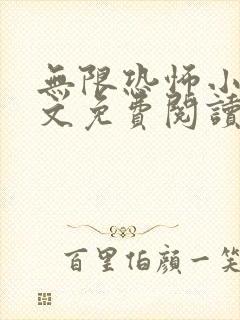 無限恐怖小
文免費閱讀
百里伯顏一笑